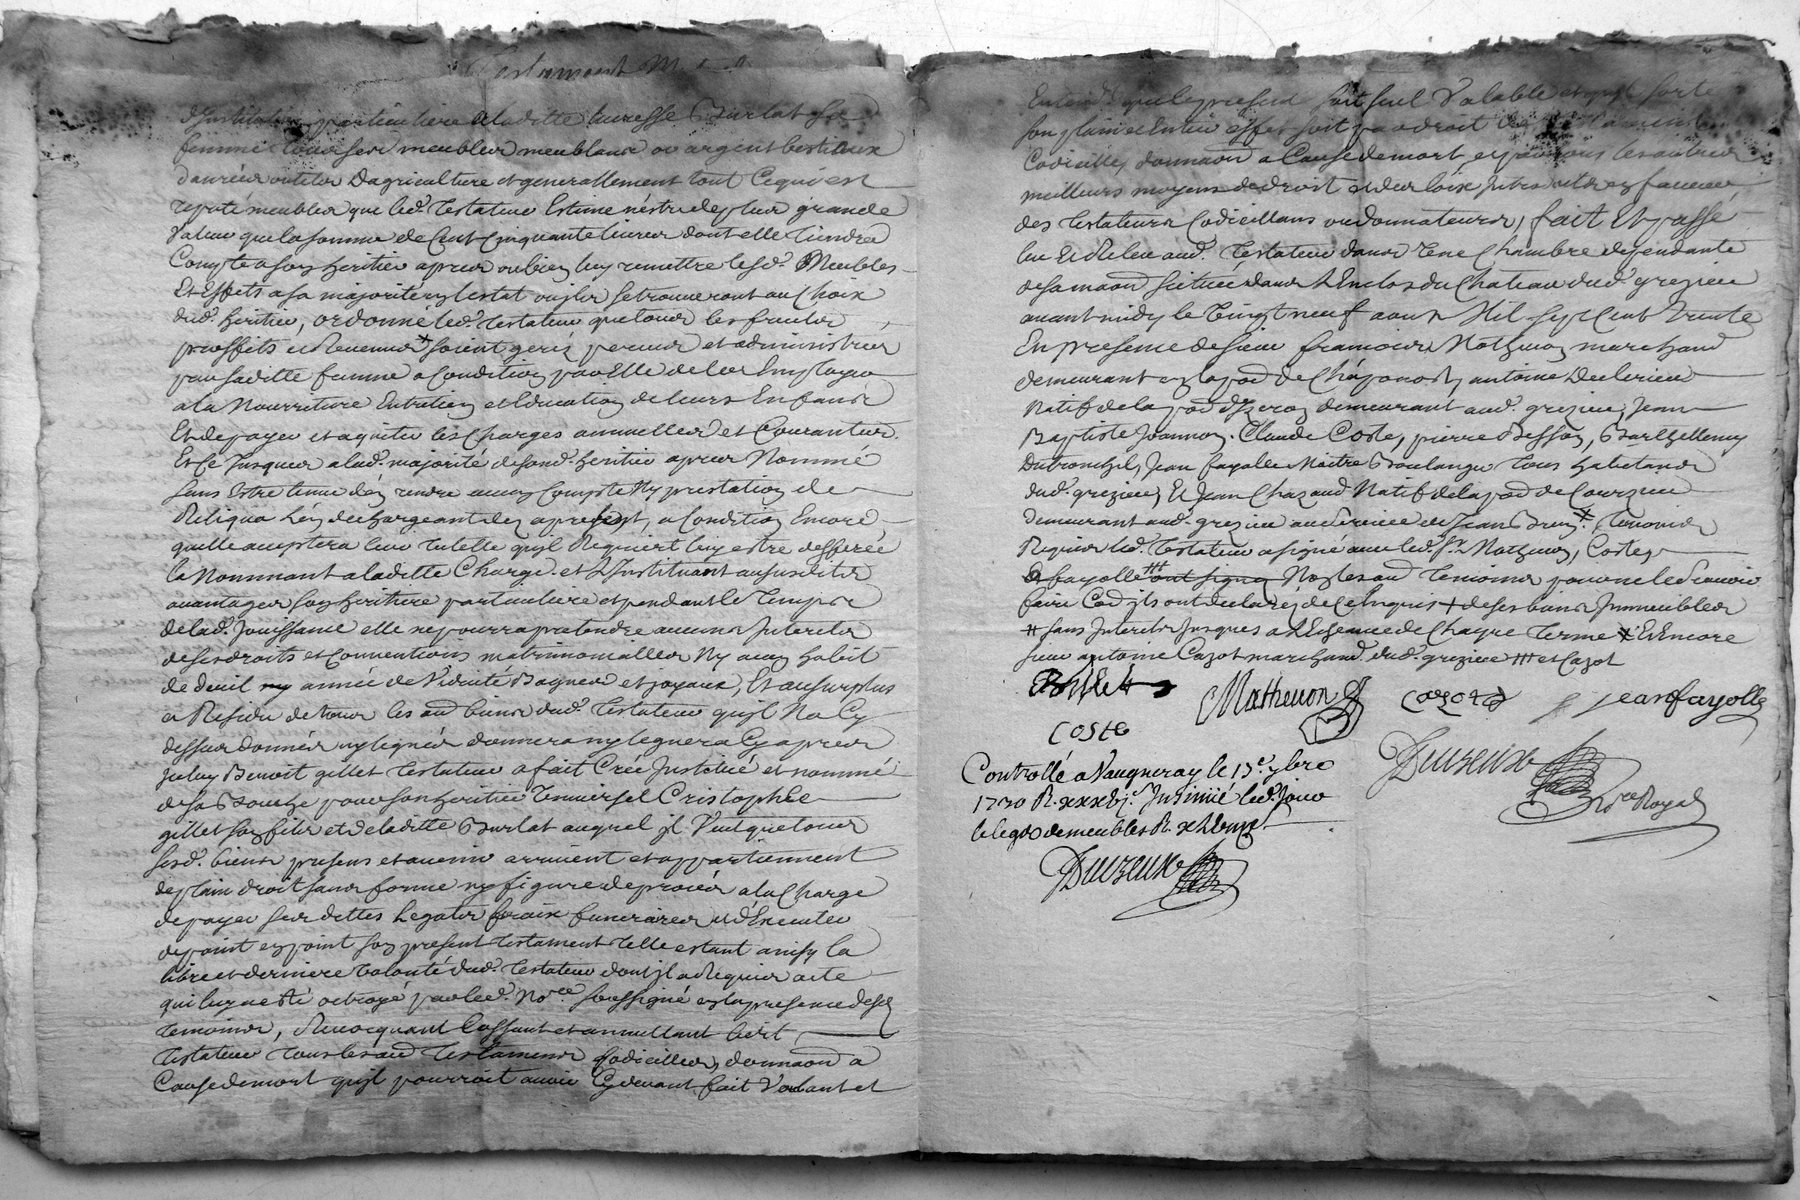 Testament
d'Institution particuliere a laditte Burlat sa
femme tous ses meubles meublans ou argent bestiaux
danrées outils d'agriculture et generallement tout ce qui est
reputé meubles que led. Testateur Estime n'estre de plus grande
Valeur que la somme de Cent Cinquante livres dont elle tiendra
Compte a son heritier apres ou bien luy remettre lesd. Meubles
Et Effets a sa majorité en l'estat ou ils se trouveront au Choix
dud. heritier, ordonne led. Testateur que tous les fruits
proffits et Revenus + soient gerés perçus et administrés
par saditte femme a Condition par Elle de les Employer
a la Nourriture Entretien et Education de leurs Enfans
Et de payer et aquiter les Charges annuelles et Courantes
Et Ce Jusques a lad. majorité de sond. heritier apres Nommé
sans Estre tenue d'en rendre aucun Compte Ny prestation de
Reliqua L'en dechargeant des apresent, a Condition Encore
quelle acceptera leur tutelle qu'il Requiert luy estre defferée
la Nommant a laditte Charge et L'Instituant au susdit
avantages son heritiere particuliere et pendant le Temps
de lad. Jouissance elle ne pourra pretendre aucuns Interets
de ses droits et Conventions matrimonialles Ny aucun habit
de deuil ny année de Viduité Bagues et joyaux, Et au surplus
et Residu de tous les aud. biens dud. Testateur qu'il N'a Cy
dessus donnés ny legués donnera ny leguera Cy apres
Jceluy Benoit gillet Testateur a fait Créé Institué et nommé
de sa Bouche pour son heritier Universel Cristophle
gillet son fils et de laditte Burlat auquel jl Veut que tous
sesd. biens presens et avenir arrivent et appartiennent
de plain droit sans forme ny figure de procés a la Charge
de payer ses dettes Legats fraix funeraires et d'Executer
de point en point son present Testament telle estant ainsy la
libre et derniere Volonté dud. Testateur dont jl a Requis acte
qui luy a esté octroyé par led. No.re soussigné en la presence desd.
temoins, Revocquant Cassant et annullant led.
Testateur tous les aud. Testamens Codicilles, donnaon a
Cause de mort qu'jl pourroit avoir Cy devant fait Voulant et
Entend que le present soit seul Valable et qu'jl sorte
son plain et Entier effet soit par droit de
Codicilles, donnaon a Cause de mort et par tous les autres
meilleurs moyens de droit et des loix Introduittes en faveur
des Testateurs Codicillans ou donnateurs, fait Et passé
leu Et Releu aud. Testateur dans Une Chambre dependante
de sa maon scituée dans L'Enclos du Chateau dud. grezieu
avant midy le Vingt neuf aoust Mil sept Cent Trente
En presence de sieur francois Mathevon marchand
demeurant en la pa.sse de Chaponost, antoine Declerieu
Natif de la pa.sse d'Izeron demeurant aud. grezieu, Jean
Baptiste Joannon, Claude Coste, pierre Besson, Barthellemy
Dutronchet, Jean fayolle Maitre Boulanger tous habitans
dud. grezieu, Et Jean Chazaud Natif de la pa.sse de Courzieu
demeurant aud. grezieu au service de Jean + temoins
Requis led. Testateur a signé avec led. Sr. Mathevon, Coste,
& fayolle ### ont signé Non les aud. temoins pour ne le sçavoir
faire Co. jls ont declarés de ce Enquis + de ses biens Immeubles
# sans Interets Jusques a L'Echeance de Chaque terme X Et Encore
sieur antoine Cazot marchand dud. grezieu ### et Cazot
Gillet Mathevon Cazot Jean fayolle
coste
Controllé a Vaugneray le 13e 7bre
1730 R. Insinué led. Jour
le legs de meubles R.
Duizeux No.re Royal
Duizeux